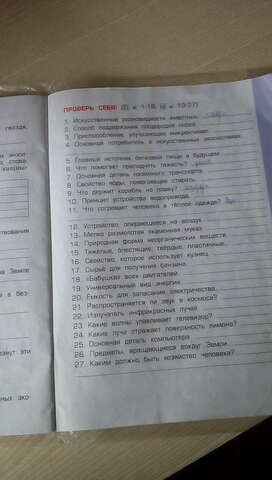 ПРОВЕРЬ СЕБЯ!
1. Искусственные разновидности животных
2. Способ поддержания плодородия полей
3. Приспособление, улучшающее микроклимат
4. Основной потребитель в искусственных экосистемах
5. Главный источник белковой пищи в будущем
6. Что помогает приподнять тяжесть?
7. Основная деталь наземного транспорта
8. Свойство воды, помогающее стирать
9. Что держит корабль на плаву?
10. Принцип устройства водопровода
11. Что согревает человека в тёплой одежде?
12. Устройство, опирающееся на воздух
13. Мелко размолотая каменная мука
14. Природная форма неорганических веществ
15. Тяжёлые, блестящие, твёрдые, пластичные
16. Свойство, которое использует кузнец
17. Сырьё для получения бензина
18. «Бабушка» всех двигателей
19. Универсальный вид энергии
20. Ёмкость для запасания электричества
21. Распространяется ли звук в космосе?
22. Излучатель инфракрасных лучей
23. Какие волны улавливает телевизор?
24. Какие лучи отражает поверхность лимона?
25. Основная деталь компьютера
26. Предметы, вращающиеся вокруг Земли
27. Каким должно быть хозяйство человека?
гнезда,
слова
ствования
Земле
в без-
эти
ных эко-